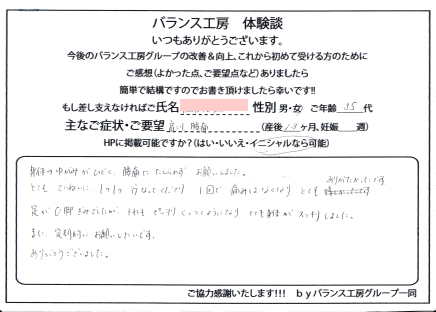 バランス工房 体験談
いつもありがとうございます。
今後のバランス工房グループの改善&向上、これから初めて受ける方のために
ご感想(よかった点、ご要望点など)ありましたら
簡単で結構ですのでお書き頂けましたら幸いです!!
もし差し支えなければご氏名 性別 男・女 ご年齢 35 代
主なご症状・ご要望 腰痛 (産後 13 ヶ月、妊娠 週)
HPに掲載可能ですか?(はい・いいえ・イニシャルなら可能)
身体のゆがみがひどく、腰痛に お願いしました。
とても ていねいに、1つ1つ 行なってくださり 1回で 痛みはなくなり とても ありがたかったです
足がO脚ぎみでしたが、それも ピッタリ くっつくようになり とても身体が スッキリ しました。
また、定期的に お願いしたいです。
ありがとうございました。
ご協力感謝いたします!!! byバランス工房グループ一同